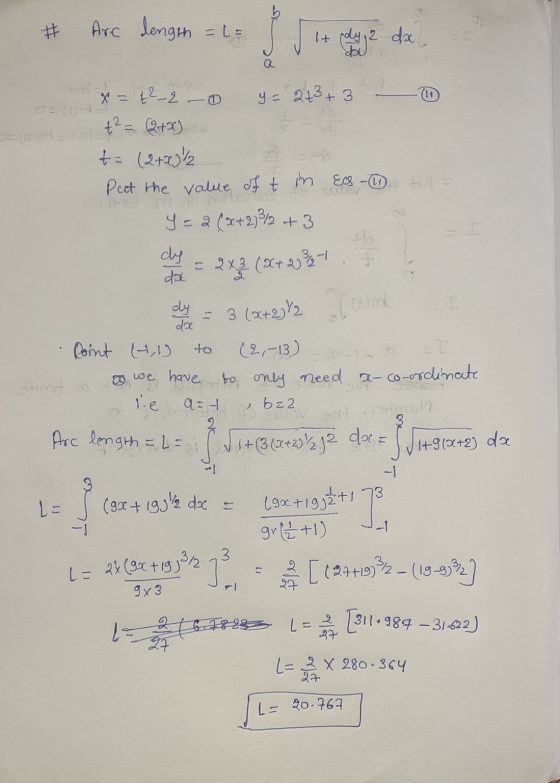 # Arc length = L = ∫_a^b √(1 + (dy/dx)^2) dx
x = t² - 2 — (I) y = 2t³ + 3 — (II)
t² = (2+x)
t = (2+x)^1/2
Put the value of t in EQs - (II)
y = 2 (x+2)^3/2 + 3
dy/dx = 2 × 3/2 (x+2)^3/2 - 1 .
dy/dx = 3 (x+2)^1/2
. Point (-1,1) to (2,-13)
we have to only need x-co-ordinate
i.e a = -1 , b = 2
Arc length = L = ∫_-1^2 √(1 + (3(x+2)^1/2)^2) dx = ∫_-1^3 √(1+9(x+2)) dx
L = ∫_-1^3 (9x + 19)^1/2 dx = (9x+19)^1/2+1 / 9×(1/2+1) ]_-1^3
L = 2×(9x+19)^3/2 / 9×3 ]_-1^3 = 2/27 [(27+19)^3/2 - (19-9)^3/2]
L = 2/27 [311.987 - 31.622]
L = 2/27 × 280.364
L = 20.767